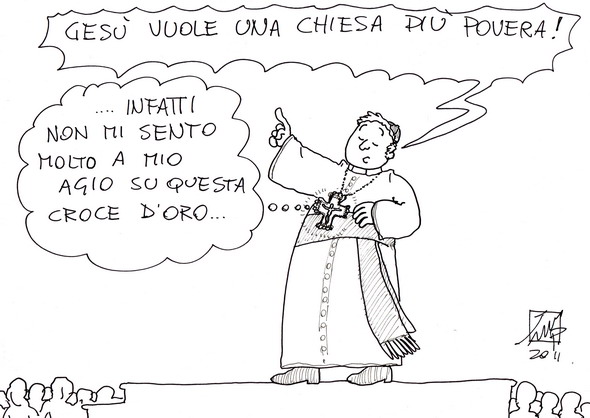 GESÙ VUOLE UNA CHIESA PIÙ POVERA!
.... INFATTI
NON MI SENTO
MOLTO A MIO
AGIO SU QUESTA
CROCE D'ORO...
2011